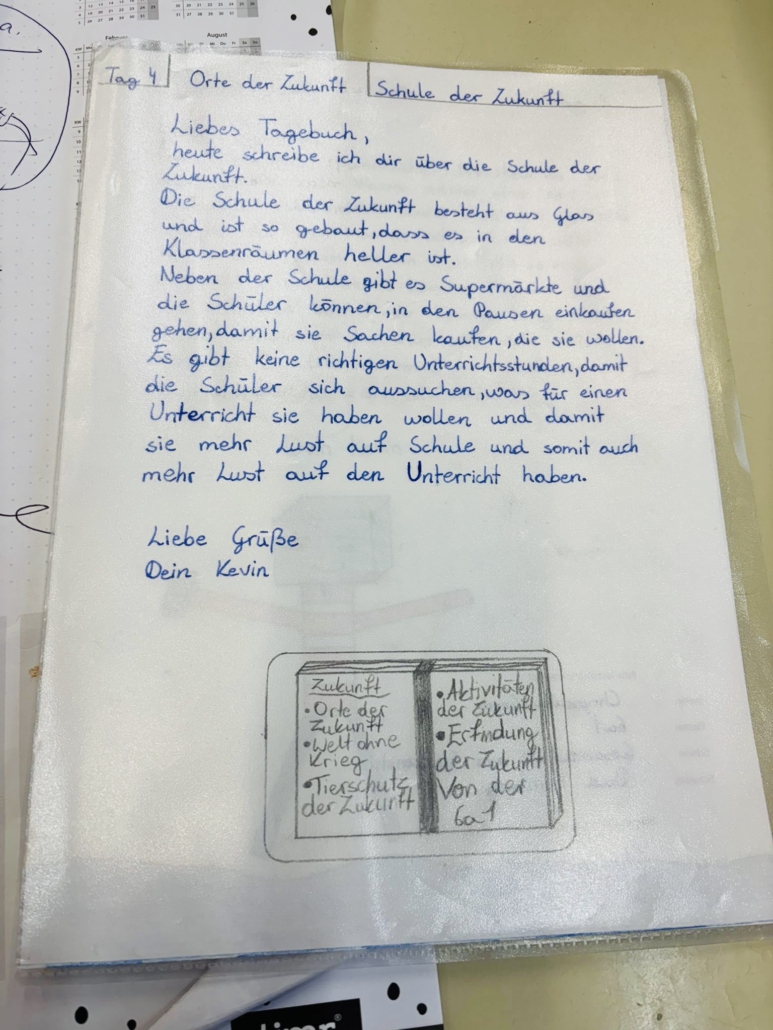 Tag 4 Orte der Zukunft Schule der Zukunft
Liebes Tagebuch,
heute schreibe ich dir über die Schule der
Zukunft.
Die Schule der Zukunft besteht aus Glas
und ist so gebaut, dass es in den
Klassenräumen heller ist.
Neben der Schule gibt es Supermärkte und
die Schüler können, in den Pausen einkaufen
gehen, damit sie Sachen kaufen, die sie wollen.
Es gibt keine richtigen Unterrichtsstunden, damit
die Schüler sich aussuchen, was für einen
Unterricht sie haben wollen und damit
sie mehr Lust auf Schule und somit auch
mehr Lust auf den Unterricht haben.
Liebe Grüße
Dein Kevin
Zukunft
• Orte der
Zukunft
• Welt ohne
Krieg
• Tierschutz
der Zukunft
• Aktivitäten
der Zukunft
• Erfindung
der Zukunft
Von der
6a1
August